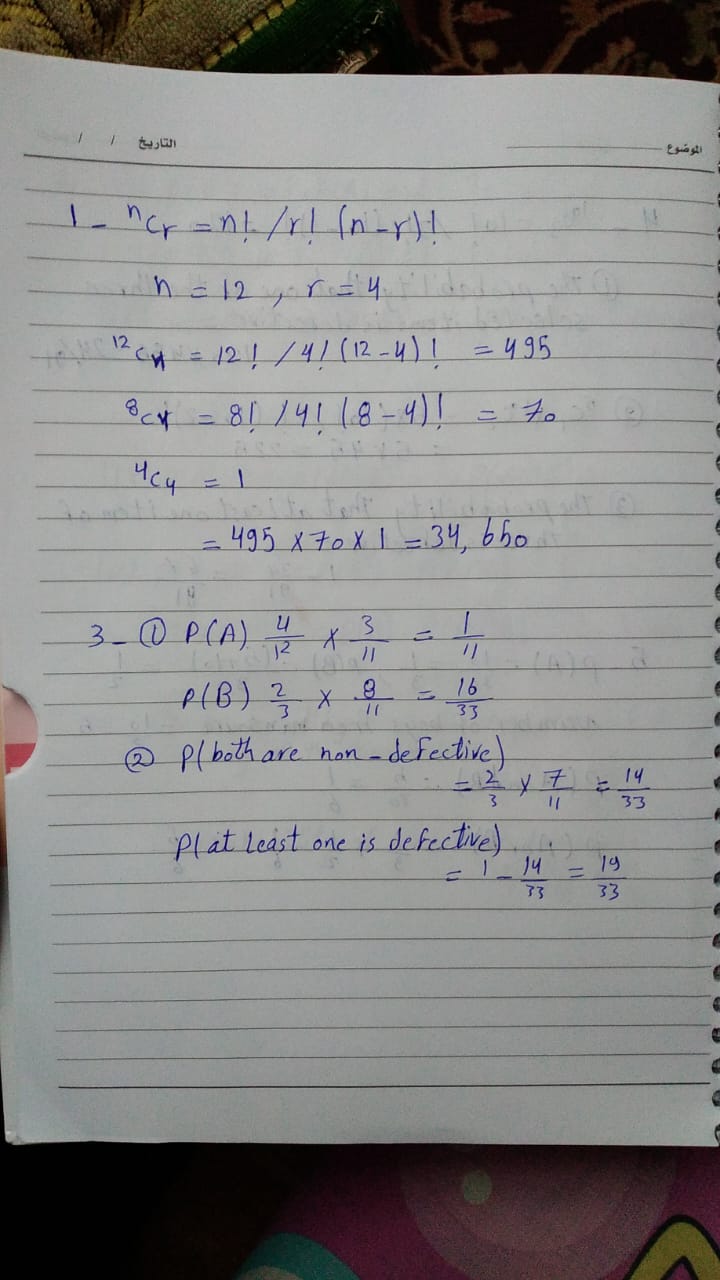 الموضوع
التاريخ / /
1 - ⁿCr = n! / r! (n - r)!
n = 12 , r = 4
¹²C4 = 12! / 4! (12 - 4)! = 495
⁸C4 = 8! / 4! (8 - 4)! = 70
⁴C4 = 1
= 495 x 70 x 1 = 34,650
3 - ① P(A) 4/12 x 3/11 = 1/11
P(B) 2/3 x 8/11 = 16/33
② P(both are non-defective)
= 2/3 x 7/11 = 14/33
P(at least one is defective)
= 1 - 14/33 = 19/33